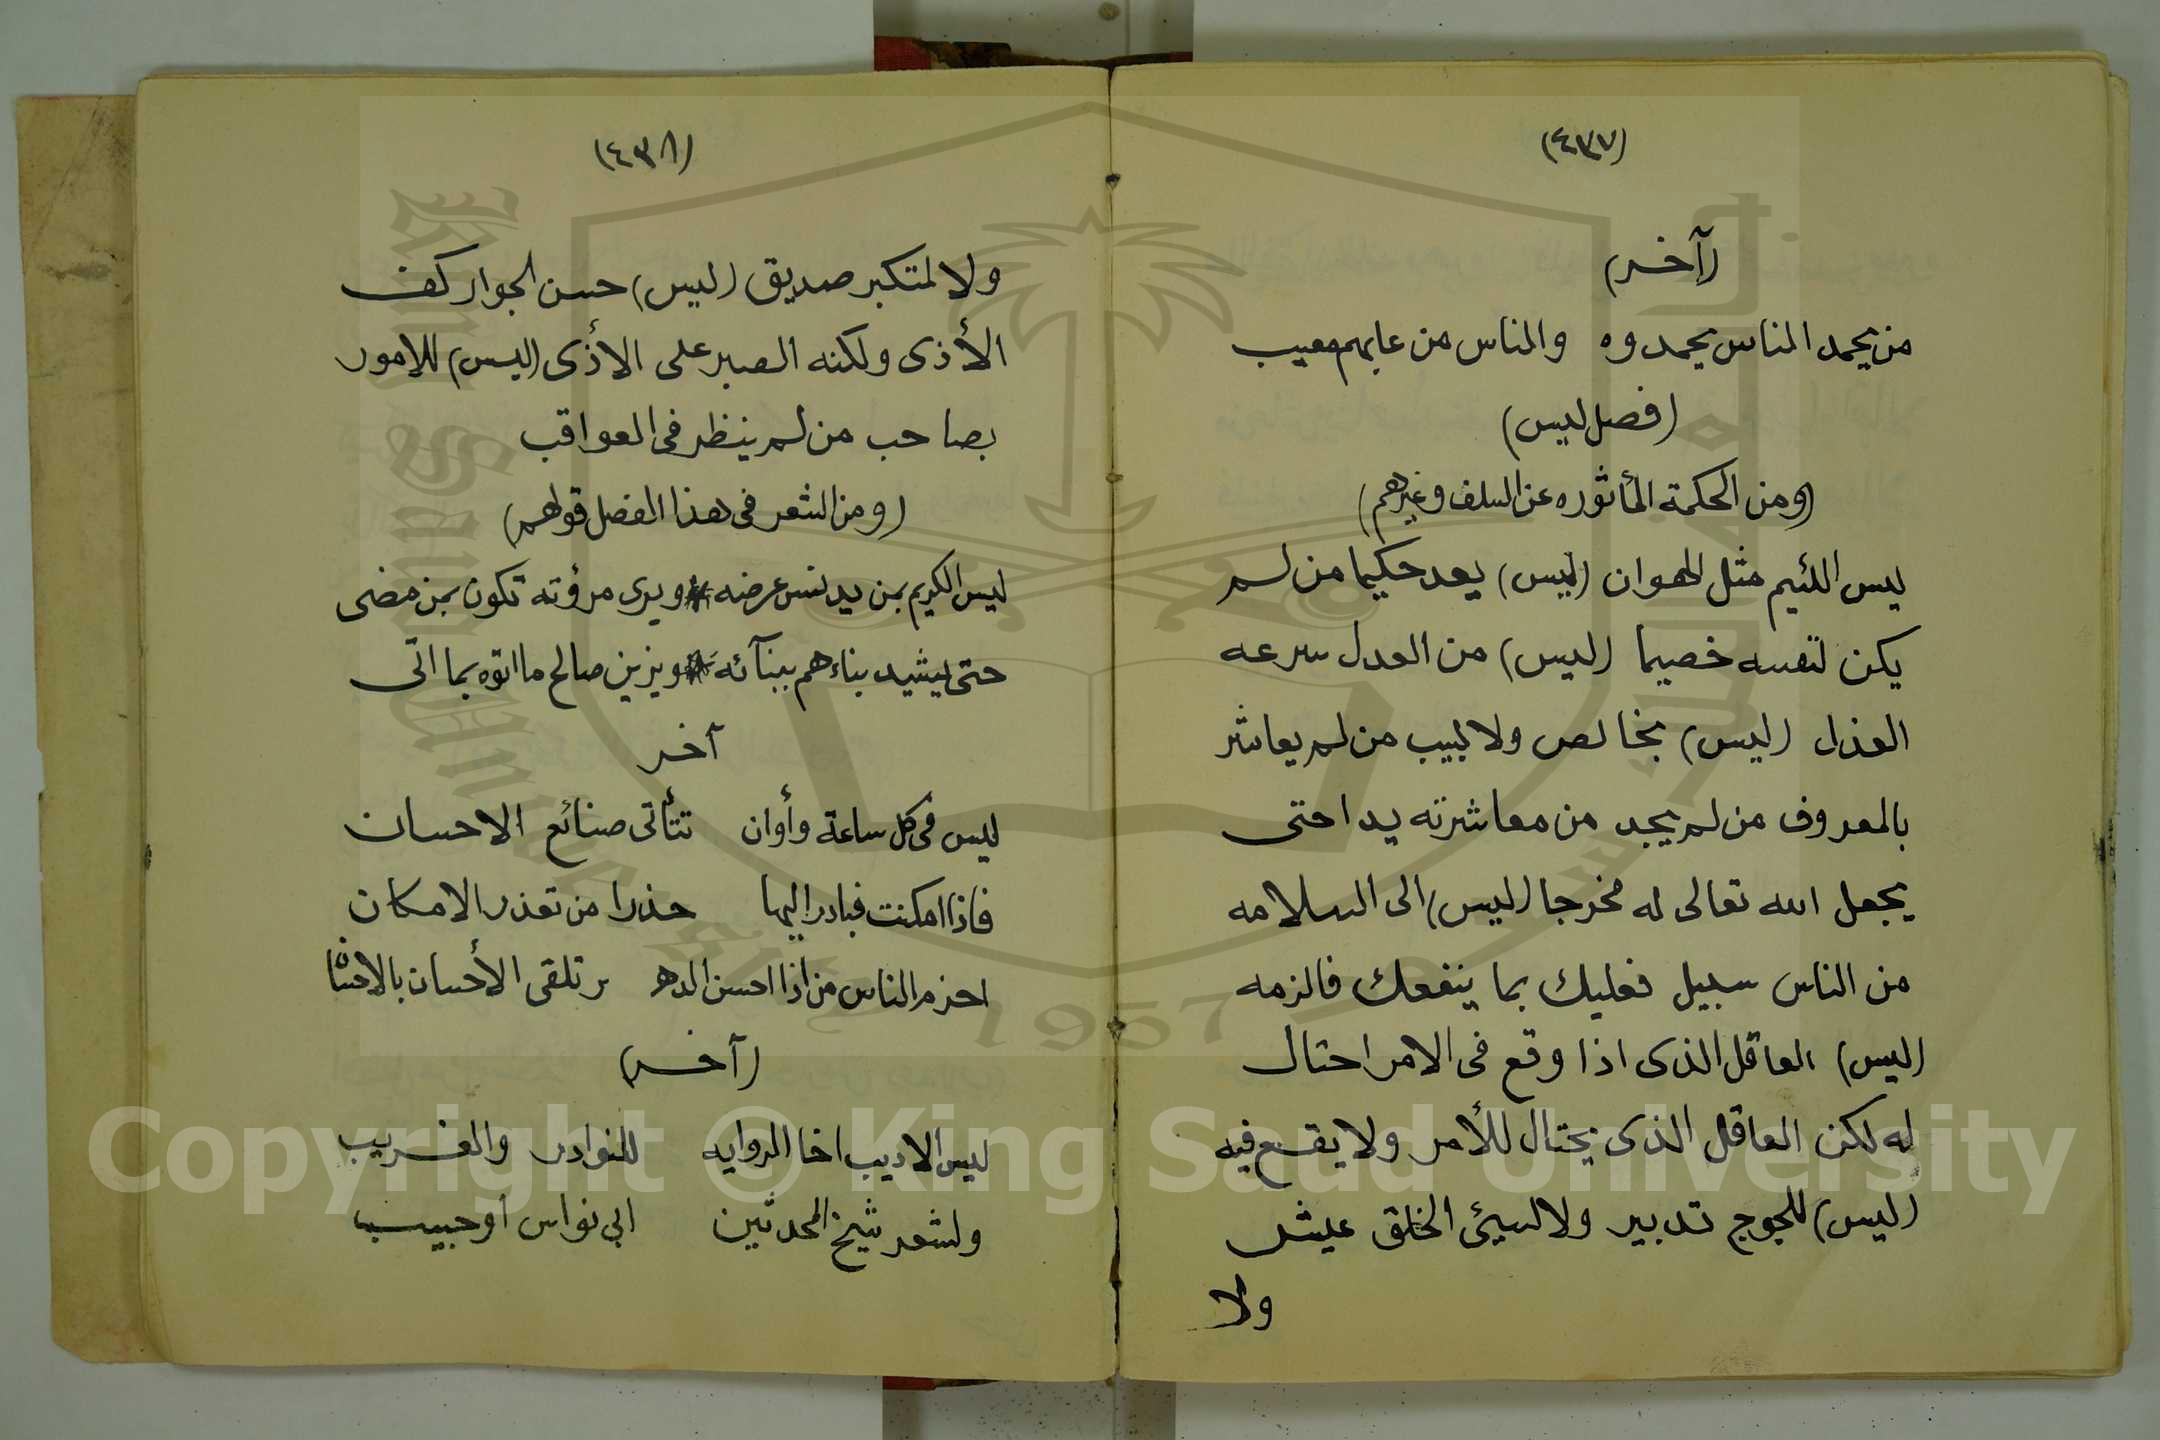 (٤٣٧)
(آخر)
من يحمد الناس يحمدوه والناس من عابهم معيب
(فصل ليس)
(ومن الحكمة المأثوره عن السلف وغيرهم)
ليس اللئيم مثل الهوان (ليس) يعد حكيما من لم
يكن لنفسه خصيما (ليس) من العدل سرعه
العذل (ليس) بخالص ولا لبيب من لم يعاشر
بالمعروف من لم يجد من معاشرته يدا حتى
يجعل الله تعالى له مخرجا (ليس) الى السلامه
من الناس سبيل فعليك بما ينفعك فالزمه
(ليس) العاقل الذى اذا وقع فى الامر احتال
له لكن العاقل الذى يحتال للأمر ولا يقع فيه
(ليس) للجوج تدبير ولا لسيئ الخلق عيش
ولا
(٤٣٨)
ولا لمتكبر صديق (ليس) حسن الجوار كف
الأذى ولكنه الصبر على الاذى (ليس) للامور
بصاحب من لم ينظر فى العواقب
(ومن الشعر فى هذا الفصل قولهم)
ليس الكريم بمن يدنس عرضه * ويرى مروٴته تكون بمن مضى
حتى يشيد بناءهم ببنآئه * ويزين صالح ما اتوه بما اتى
آخر
ليس فى كل ساعة وأوان تتأتى صنائع الاحسان
فاذا امكنت فبادر اليها حذرا من تعذر الامكان
احزم الناس من اذا احسن الدهر تلقى الأحسان بالاحسان
(آخر)
ليس الاديب اخا الروايه للنوادر والغريب
ولشعر شيخ المحدثين ابي نواس أو حبيب
Copyright © King Saud University
King Saud University
1957